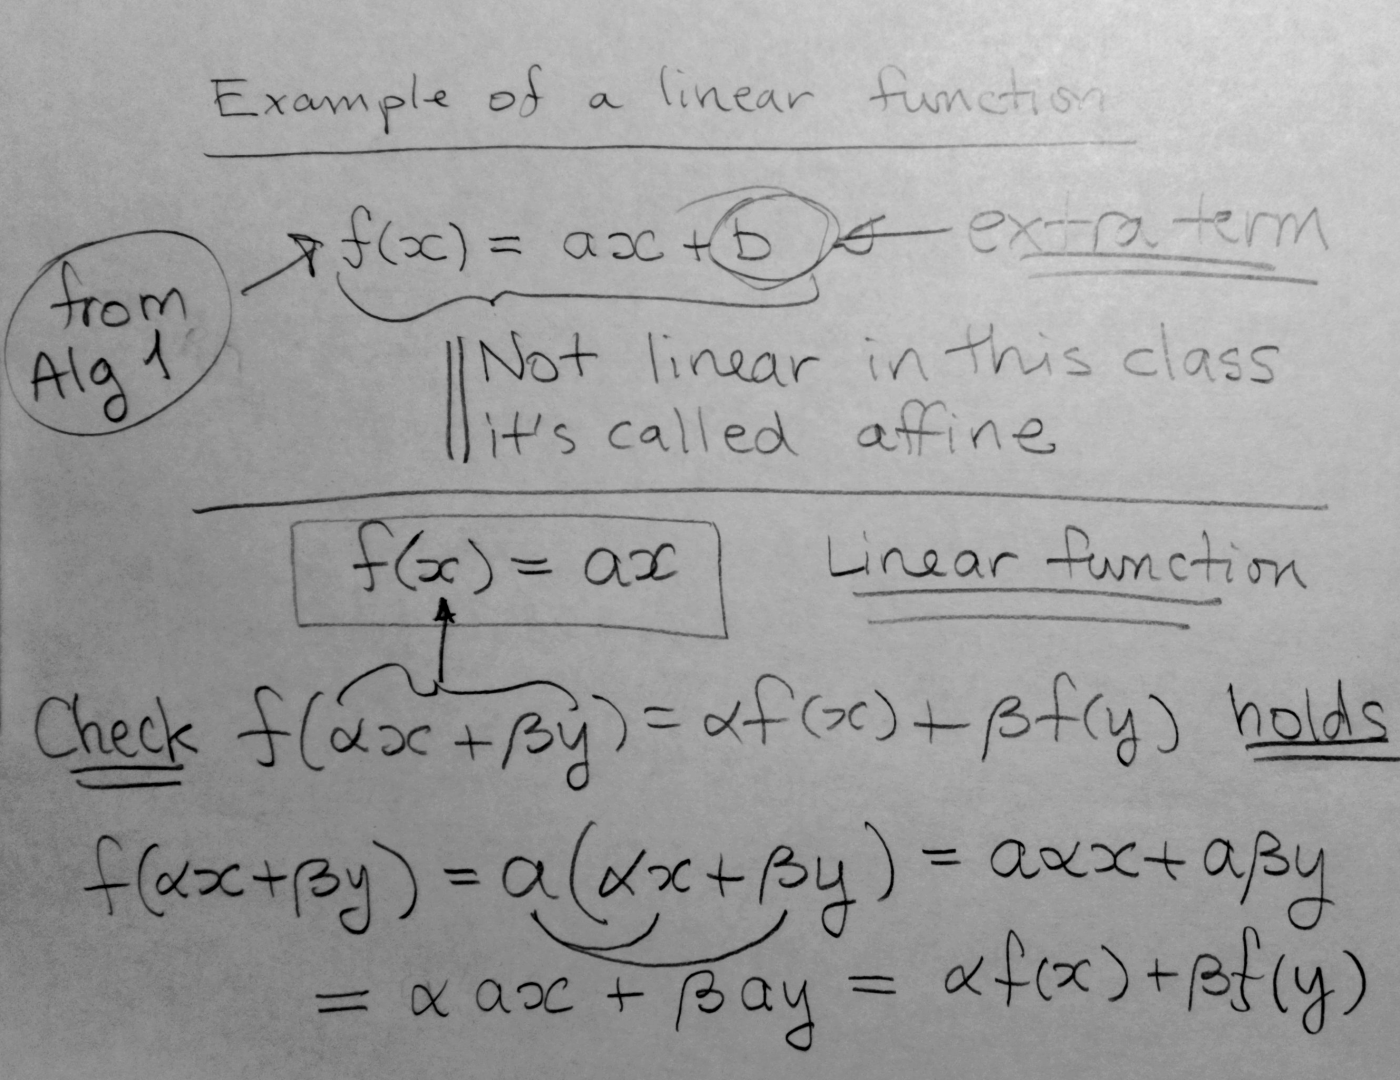 Example of a linear function
from
Alg 1
f(x) = ax + b
extra term
Not linear in this class
it's called affine
f(x) = ax
Linear function
Check f(αx + βy) = αf(x) + βf(y) holds
f(αx+βy) = a(αx+βy) = aαx + aβy
= α ax + β ay = αf(x) + βf(y)